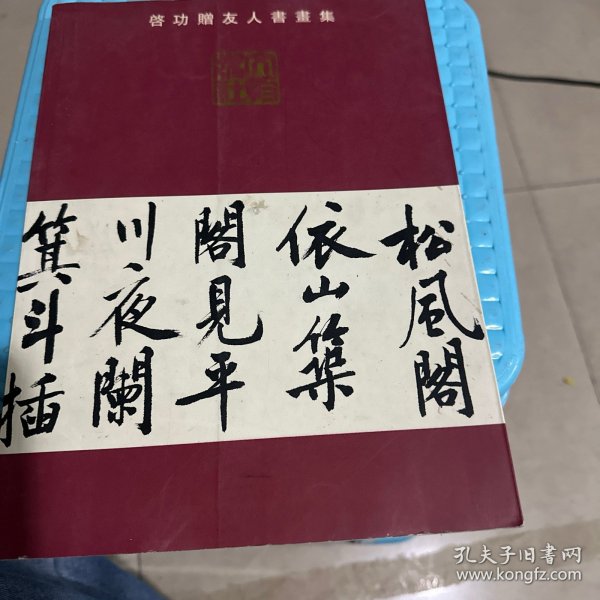 啓功贈友人書畫集
松風閣
依山築
閣見平
川夜闌
箕斗插
孔夫子旧书网
www.kongfz.com